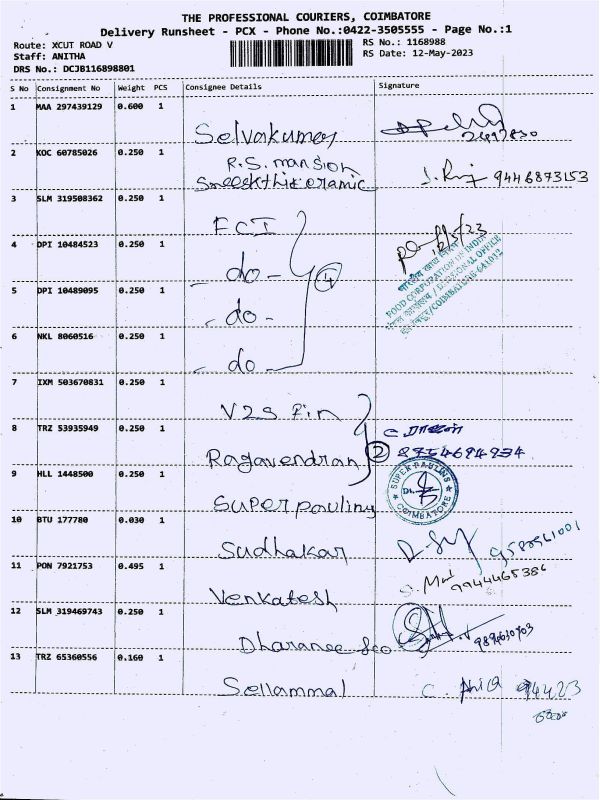 THE PROFESSIONAL COURIERS, COIMBATORE
Delivery Runsheet - PCX - Phone No.:0422-3505555 - Page No.:1
Route: XCUT ROAD V
RS No.: 1168988
Staff: ANITHA
RS Date: 12-May-2023
DRS No.: DCJB116898801
S No Consignment No Weight PCS Consignee Details Signature
1 MAA 297439129 0.600 1 Selvakumar
2 KOC 60785026 0.250 1 R.S. mansion 9446873153
3 SLM 319508362 0.250 1 FCI 12/5/23
4 DPI 10484523 0.250 1 - do - 4
भारतीय खाद्य निगम
FOOD CORPORATION OF INDIA
DIVISIONAL OFFICE
COIMBATORE-641012
5 DPI 10489095 0.250 1 - do -
6 NKL 8060516 0.250 1 - do -
7 IXM 503670831 0.250 1 V2S Fin
8 TRZ 53935949 0.250 1 Ragavendran 2
9 HLL 1448500 0.250 1 Super pauling
SUPER PAULINS
COIMBATORE
10 BTU 177780 0.030 1 Sudhakar
11 PON 7921753 0.495 1 Venkatesh 9944465386
12 SLM 319469743 0.250 1 Dharanee
13 TRZ 65360556 0.160 1 Sellammal